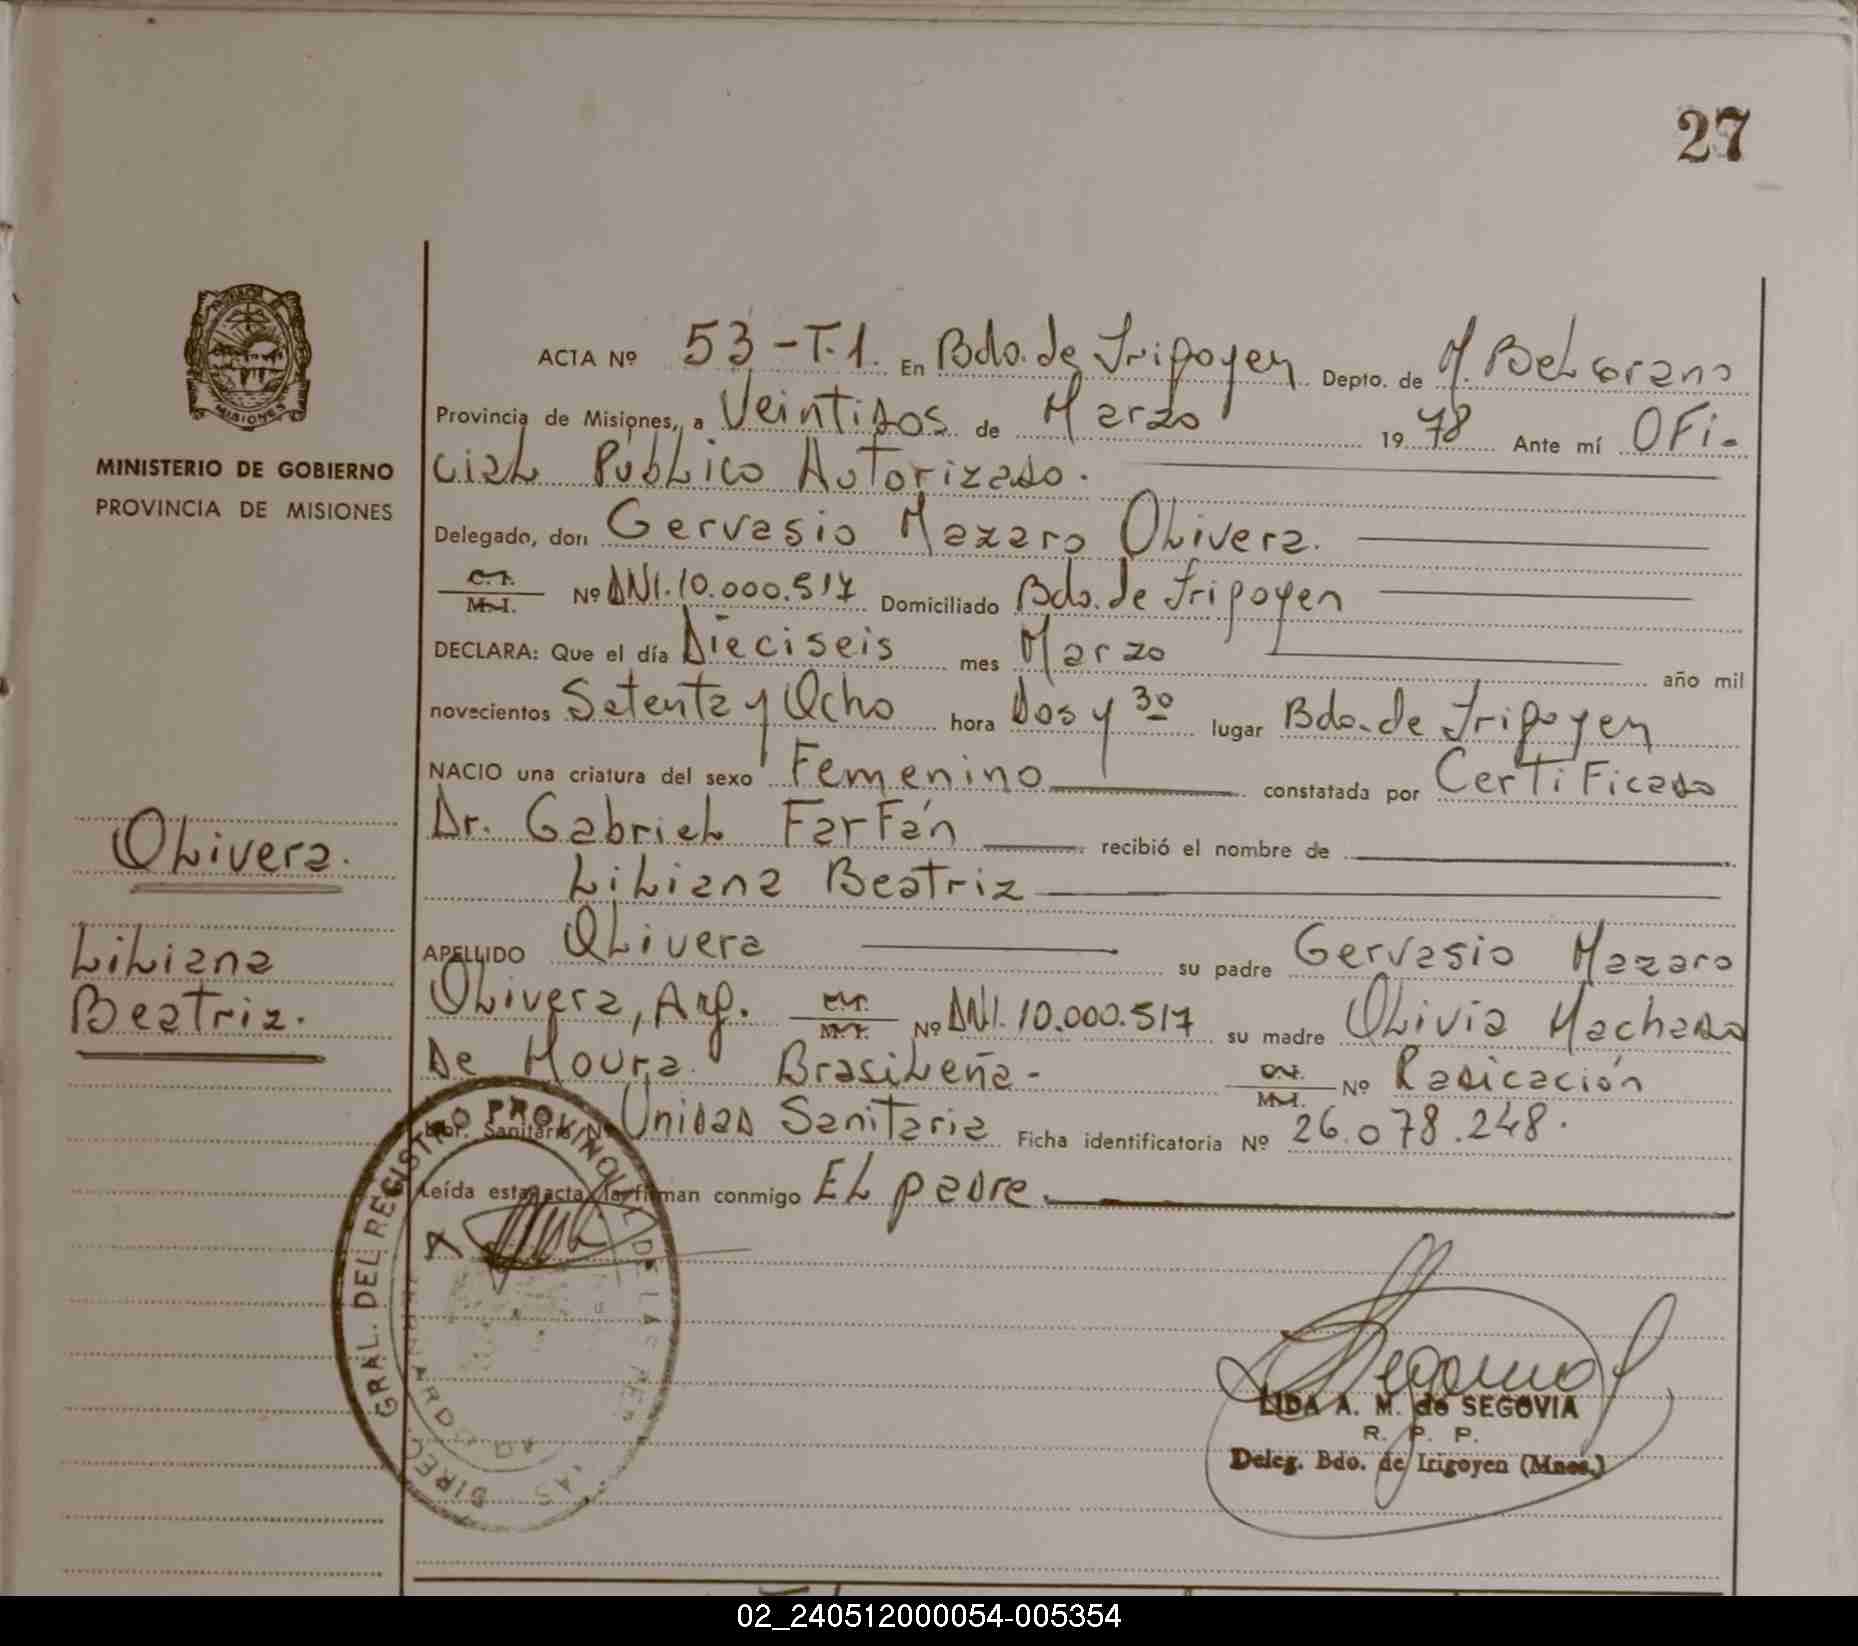 27
MISIONES
MINISTERIO DE GOBIERNO
PROVINCIA DE MISIONES
Olivera.
Liliana
Beatriz.
ACTA Nº 53-T.1. En Bdo. de Irigoyen Depto. de M. Belgrano
Provincia de Misiones, a Veintidos de Marzo 1978 Ante mí Ofi-
cial Público Autorizado.
Delegado, don Gervasio Mazaro Olivera.
C.I. M.I. Nº DNI. 10.000.517 Domiciliado Bdo. de Irigoyen
DECLARA: Que el día Dieciseis mes Marzo año mil
novecientos Setenta y Ocho hora Dos y 30 lugar Bdo. de Irigoyen
NACIO una criatura del sexo Femenino constatada por Certificado
Dr. Gabriel Farfán recibió el nombre de
Liliana Beatriz
APELLIDO Olivera su padre Gervasio Mazaro
Olivera, Arg. C.I. M.I. Nº DNI. 10.000.517 su madre Olivia Machado
De Moura. Brasileña- C.I. M.I. Nº Radicación
Libr. Sanitaria Nº Unidad Sanitaria Ficha identificatoria Nº 26.078.248.
Leída esta acta la firman conmigo El padre.
DIREC. GRAL. DEL REGISTRO PROVINCIAL DE LAS PERSONAS
LIDA A. M. de SEGOVIA
R. P. P.
Deleg. Bdo. de Irigoyen (Mnes.)
02_240512000054-005354